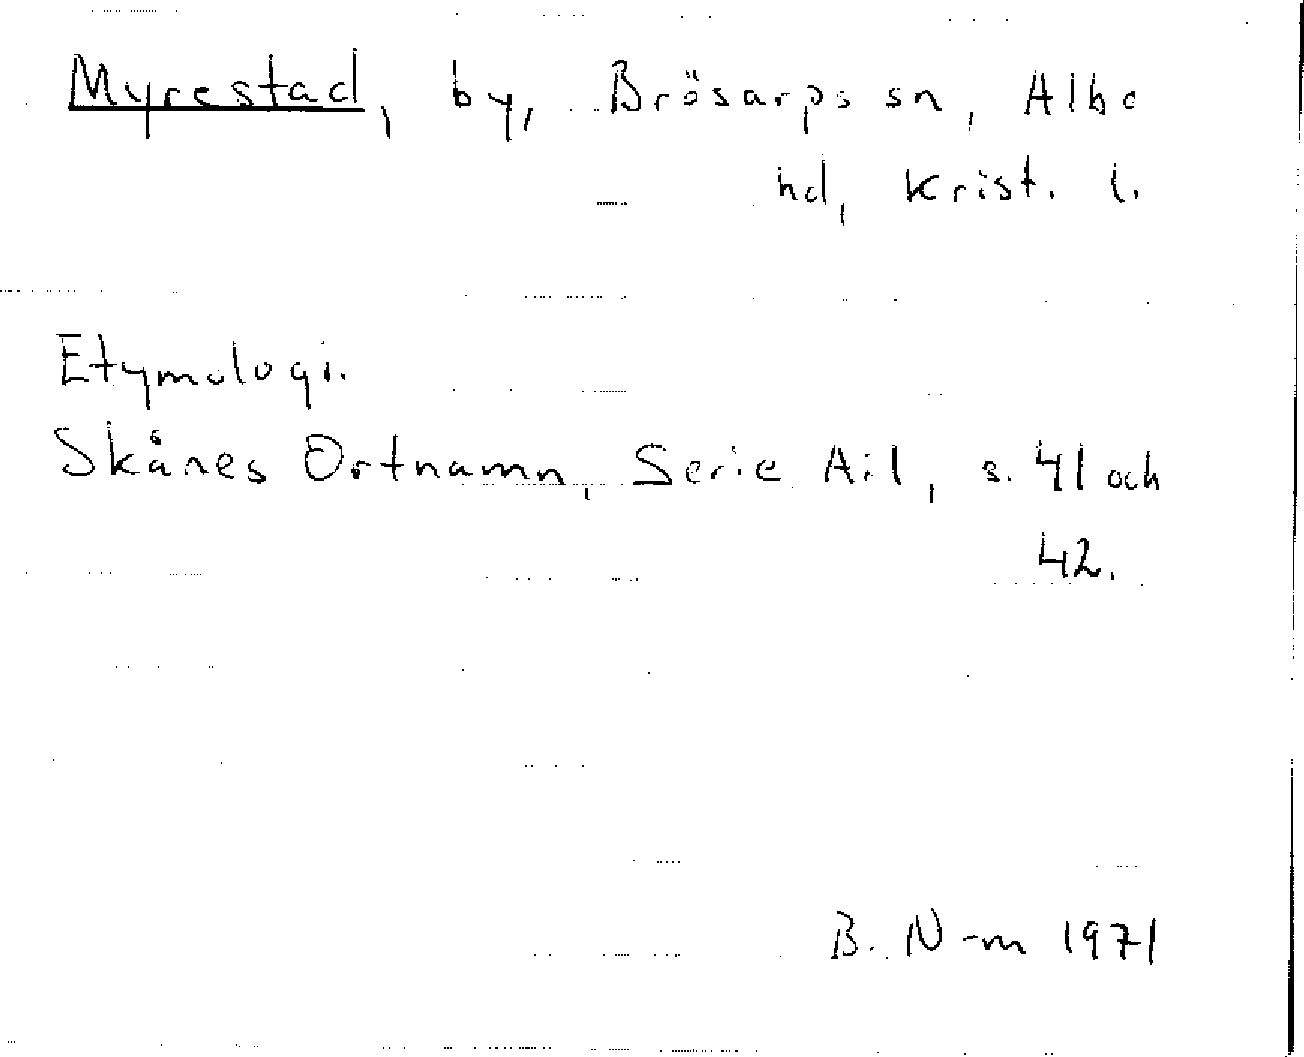 Myrestad, by, Brösarps sn, Albo
hd, Krist. l.
Etymologi.
Skånes Ortnamn, Serie A:1, s. 41 och
42.
B. N-m 1971